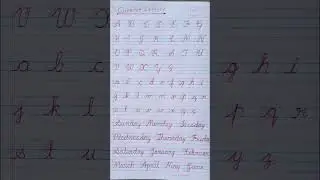 Cursive Letters
A B C D E F G
H I J K L M N
O P Q R S T U
V W X Y Z
a b c d e f g h i
j k l m n o p q r
s t u v w x y z
Sunday Monday Tuesday
Wednesday Thursday Friday
Saturday January February
March April May June